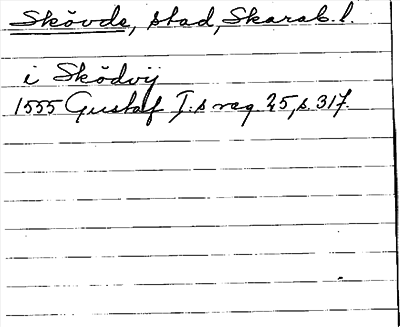 Skövde, stad, Skarab. l.
i Sködvij
1555 Gustaf I.s reg. 25, s. 317.